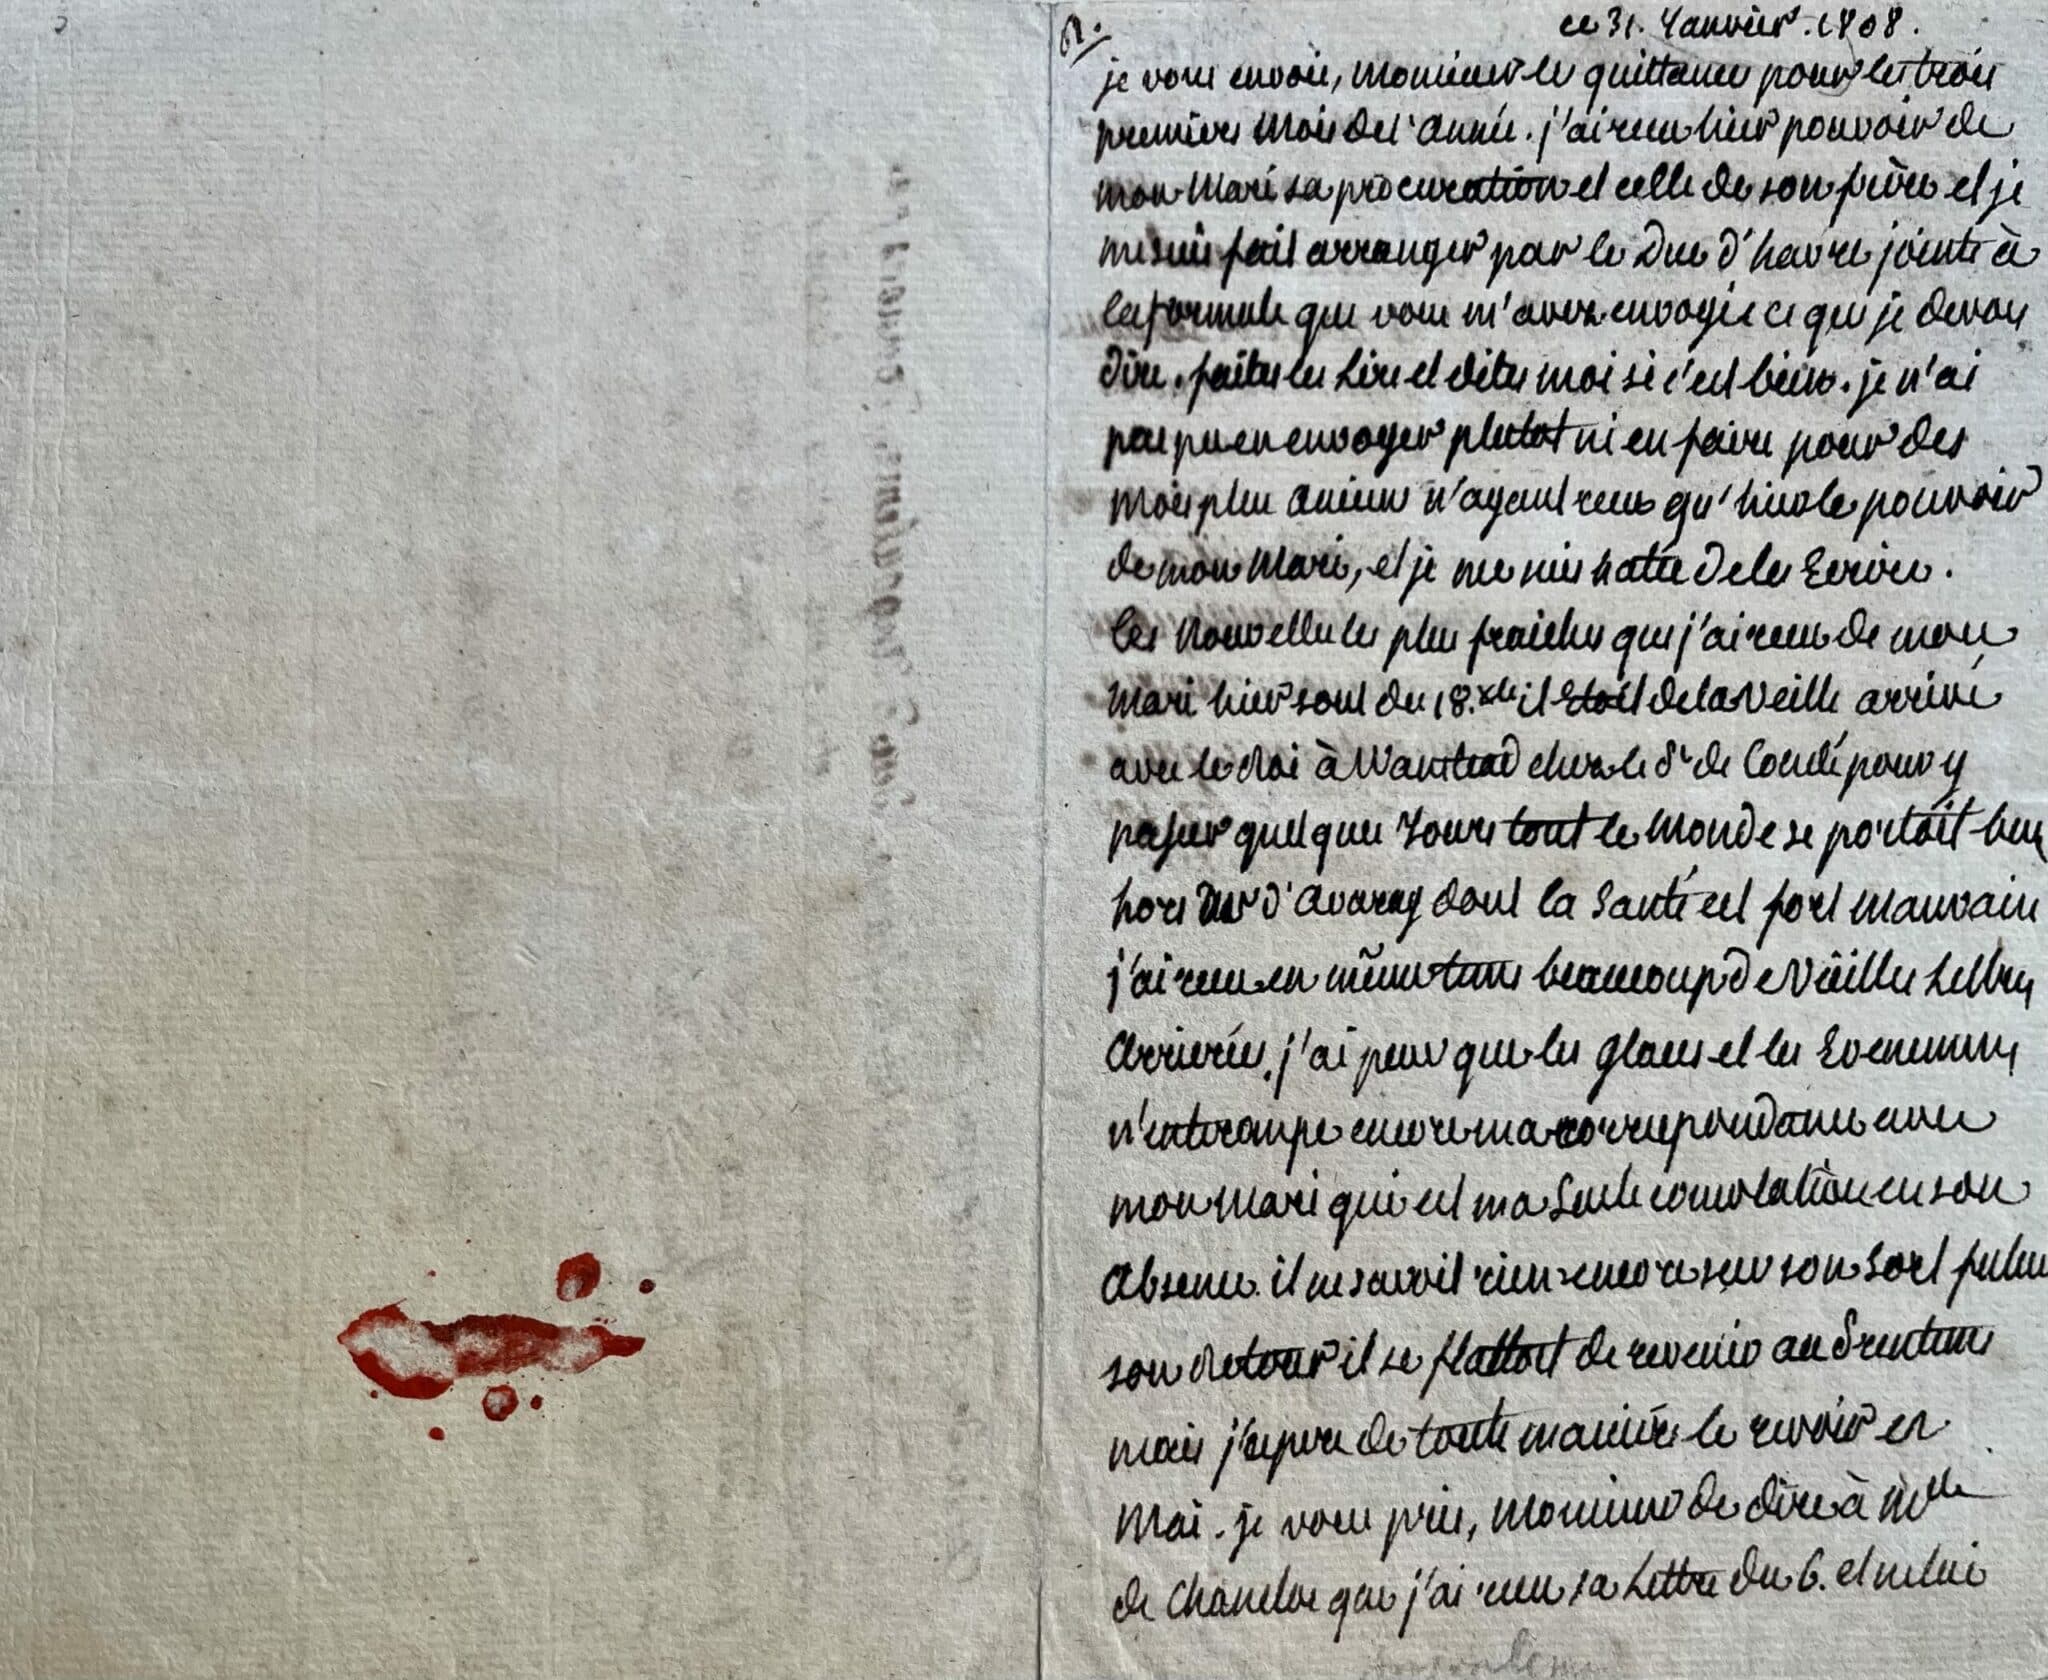 ce 31. Janvier. 1808.
je vous envoie, Monsieur les quittances pour les trois
premiers Mois de l'année. j'ai recu hier pouvoir de
mon Mari sa procuration et celle de son frère et je
me suis fait arranger par le Duc d'havré jointe à
la formule que vous m'avez envoyée ce que je devois
dire. faites les Lire et dites moi si c'est bien. je n'ai
pas pu en envoyer plutot ni en faire pour des
Mois plus anciens n'ayant recu qu'hier le pouvoir
de mon Mari, et je me suis hatée de les Ecrire.
les Nouvelles les plus fraiches que j'ai recues de mon
Mari hier sont du 18. il Etoit de la Veille arrivé
avec le Roi à Wanstead chez le Pce de Condé pour y
passer quelques Jours tout le Monde se portoit bien
hors Duc d'Avaray dont la Santé est fort mauvaise
j'ai recu en même tems beaucoup de Vieilles Lettres
Arrierées. j'ai peur que les glaces et les Evenemens
n'interrompe encore ma correspondance avec
mon Mari qui est ma Seule consolation en son
Absence. il ne savoit rien encore sur son Sort futur
son Retour il se flattoit de revenir au Printems
mais j'espere de toute manière le revoir en
Mai. je vous prie, Monsieur de dire à Mlle
de Choiseul que j'ai recu sa Lettre du 6. et ne lui